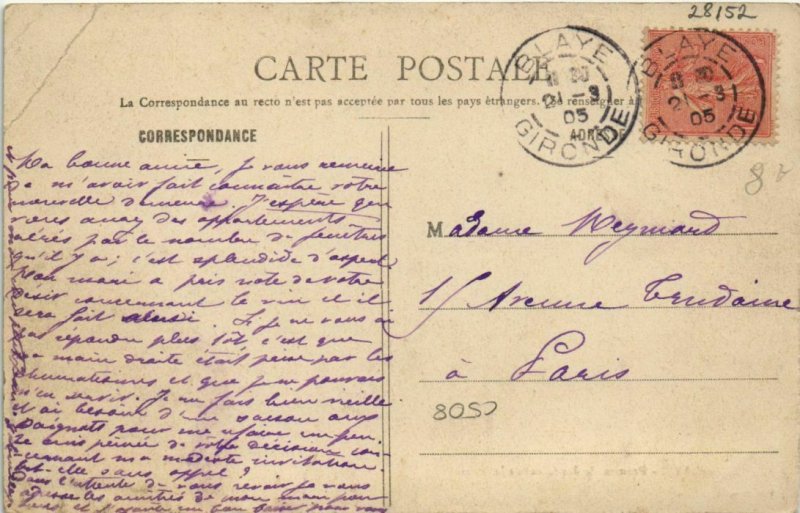 28152
CARTE POSTALE
La Correspondance au recto n'est pas acceptée par tous les pays étrangers. (Se renseigner à
CORRESPONDANCE
BLAYE
21 - 3
05
GIRONDE
BLAYE
21 - 3
05
GIRONDE
Ma bonne amie, je vous remercie
de m'avoir fait connaître votre
nouvelle demeure. J'espère que
vous avez des appartements
aérés par le nombre de fenêtres
qu'il y a ; c'est splendide d'aspect
mon mari a pris note de votre
désir concernant le vin et il
sera fait ainsi. Si je ne vous ai
pas répondu plus tôt c'est que
ma main droite était prise par les
rhumatismes et que je ne pouvais
m'en servir. Je me fais bien vieille
et ai besoin d'une saison aux
pour me refaire un peu.
Je suis peinée de votre décision con-
cernant ma modeste invitation.
est-elle sans appel ?
Dans l'attente de vous revoir je vous
adresse les amitiés de mon mari pour
et j'ajoute un bon baiser pour vous
Madame Meymard
15 Avenue Trudaine
à Paris
8052